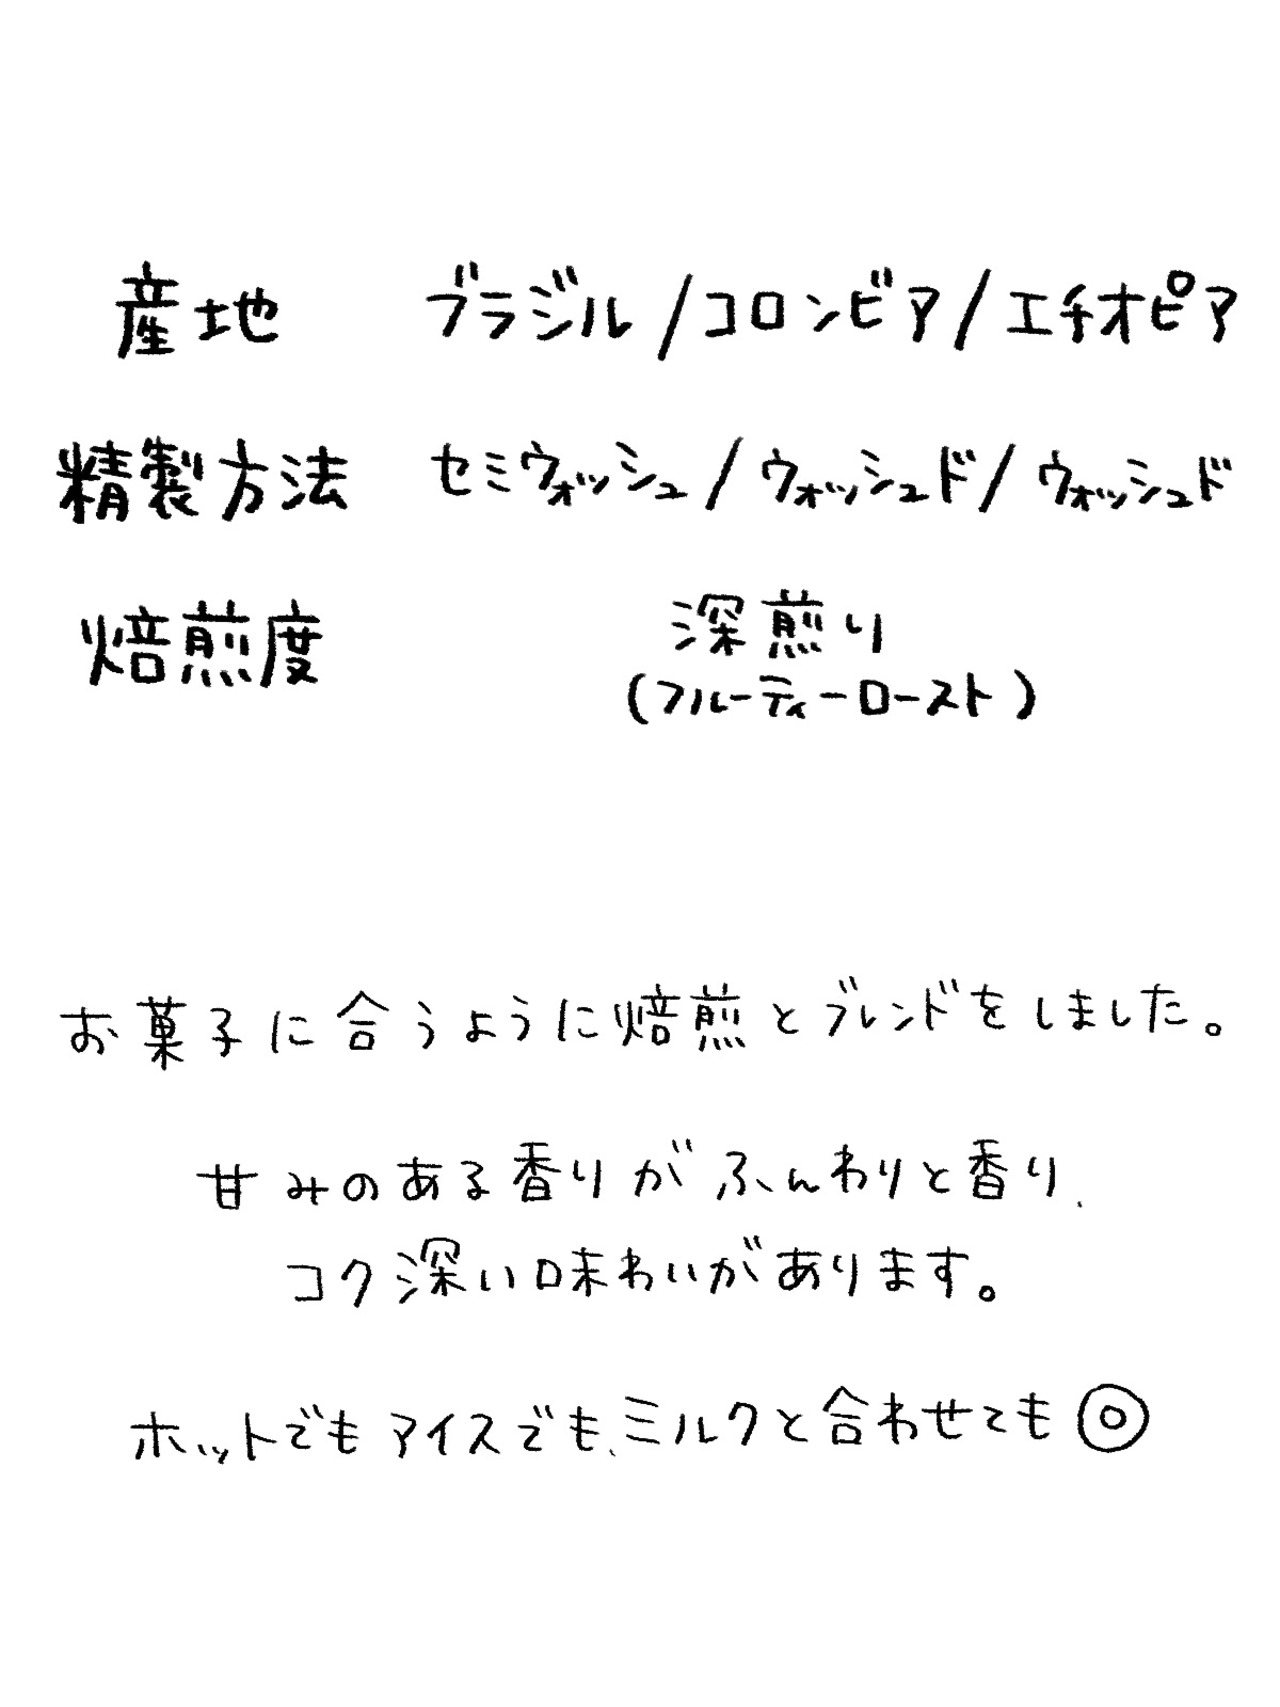 産地 ブラジル/コロンビア/エチオピア
精製方法 セミウォッシュ/ウォッシュド/ウォッシュド
焙煎度 深煎り
(フルーティーロースト)
お菓子に合うように焙煎とブレンドをしました。
甘みのある香りがふんわりと香り、
コク深い味わいがあります。
ホットでもアイスでも、ミルクと合わせても◎